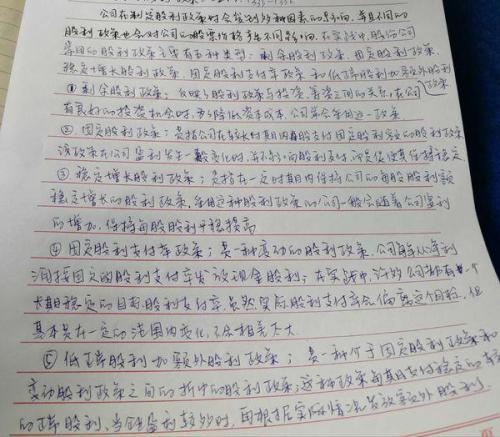 公司在制定股利政策时会受到多种因素的影响,并且不同的
股利政策也会对公司的股票价格产生不同影响。在实践中,股份公司
常用的股利政策主要有五种类型:剩余股利政策、固定股利政策、
稳定增长股利政策、固定股利支付率政策和低正常股利加额外股利
政策
① 剩余股利政策:反映了股利政策与投资、筹资之间的关系,在公司
有良好的投资机会时,为降低资本成本,公司常会采用这一政策
② 固定股利政策:是指公司在较长时期内每股支付固定股利额的股利政策
该政策在公司盈利发生一般变化时,并不影响股利支付,而是使其保持稳定
③ 稳定增长股利政策:是指在一定时期内保持公司的每股股利额
稳定增长的股利政策,采用这种股利政策的公司一般会随着公司盈利
的增加,保持每股股利平稳提高
④ 固定股利支付率政策:是一种变动的股利政策,公司每年从净利
润按固定的股利支付率发放现金股利;在实践中,许多公司都有一个
长期稳定的目标股利支付率,虽然实际股利支付率会偏离这个目标,但
基本是在一定的范围内变化,不会相差太大
⑤ 低正常股利加额外股利政策:是一种介于固定股利政策和
变动股利政策之间的折中的股利政策;这种政策每期支付稳定的
的正常股利,当盈利较多时,再根据实际情况发放额外股利,